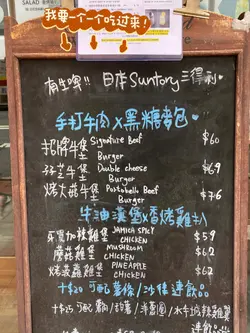 SALAD
我要一个一个吃过来!
有生啤!! 日本Suntory三得利
手打牛肉x黑糖麵包
招牌牛堡 Signature Beef Burger $60
Double cheese Burger $69
烤大菇牛堡 Portobello Beef Burger $76
牛油漢堡x香烤雞扒
牙買加辣雞堡 JAMAICA SPICY CHICKEN $59
蘑菇雞堡 MUSHROOM CHICKEN $62
烤菠蘿雞堡 PINEAPPLE CHICKEN $62
+$20 可配薯條/沙律 連飲品